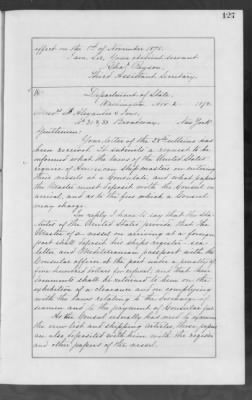 127
effect on the 1st of November 1878.
I am, Sir, Your obedient servant
Chas. Payson,
Third Assistant Secretary.
Department of State,
Washington, Nov. 2. 1878.
Alexander & Sons,
No. 31 & 33 Broadway, New York
Gentlemen:
Your letter of the 28th ultimo has
been received. It submits a request to be
informed what the laws of the United States
require of American ship masters on entering
their vessels at a Consulate, and what papers
the Master must deposit with the Consul on
arrival, and as to the fees which a Consul
may charge.
In reply I have to say that the Sta-
tutes of the United States provide, that the
Master of a vessel on arriving at a foreign
port shall deposit his ship's register, sea
letter and Mediterranean passport with the
Consular officer at the port under a penalty of
five hundred dollars for refusal, and that these
documents shall be returned to him on the
exhibition of a clearance and on complying
with the laws relating to the discharge of
seamen and to the payment of Consular fees.
As the Consul usually has need to
the crew list and shipping articles, these papers
are also deposited with him with the register
and other papers of the vessel.